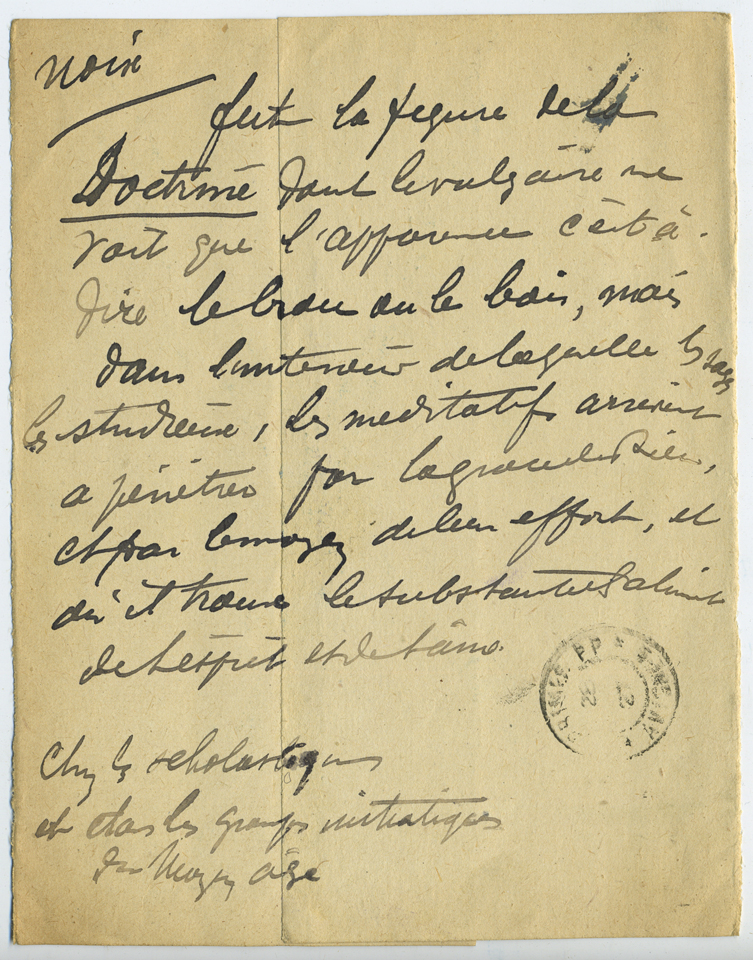 noix
fut la figure de la
Doctrine dont le vulgaire ne
voit que l'apparence c'est à-
dire le brou ou le bois, mais
dans l'interieur de laquelle les sages
les studieux, les meditatifs arrivent
a pénétrer par la grace de Dieu,
et par le moyen de leur effort, et
où il trouve le substantiel aliment
de l'esprit et de l'âme.
Chez les scholastiques
et dans les groupes initiatiques
du Moyen âge